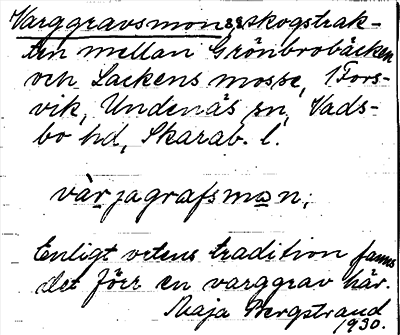 Varggravsmon, skogstrak-
ten mellan Grönbrobäcken
och Lackens mosse, 1 Fors-
vik, Undenäs sn, Vads-
bo hd, Skarab. l.
värjagrafsmon;
Enligt ortens tradition fanns
det förr en varggrav här.
Maja Bergstrand
1930.